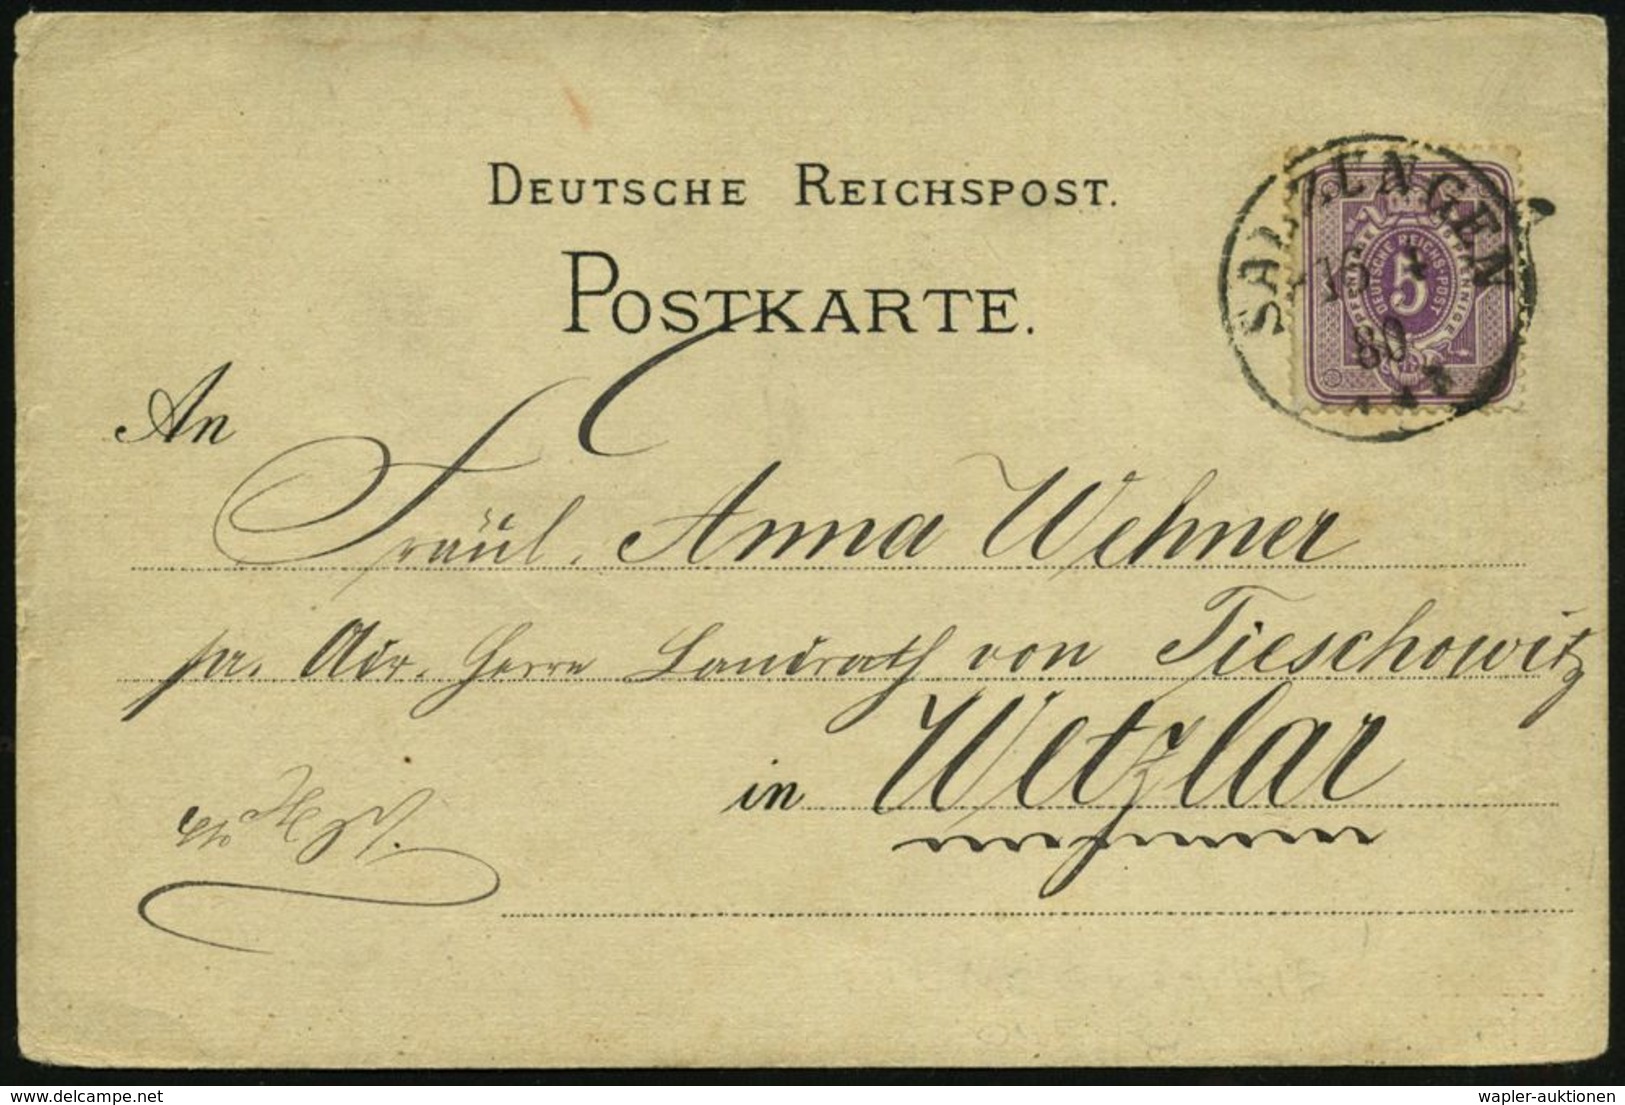 DEUTSCHE REICHSPOST.
POSTKARTE.
SALZUNGEN
80
DEUTSCHE REICHS-POST
5
PFENNIGE
PFENNIGE
An
Fräul. Anna Wehner
pr. Adr. Herrn Landrath von Tieschowitz
in Wetzlar
www.delcampe.net
wapler-auktionen